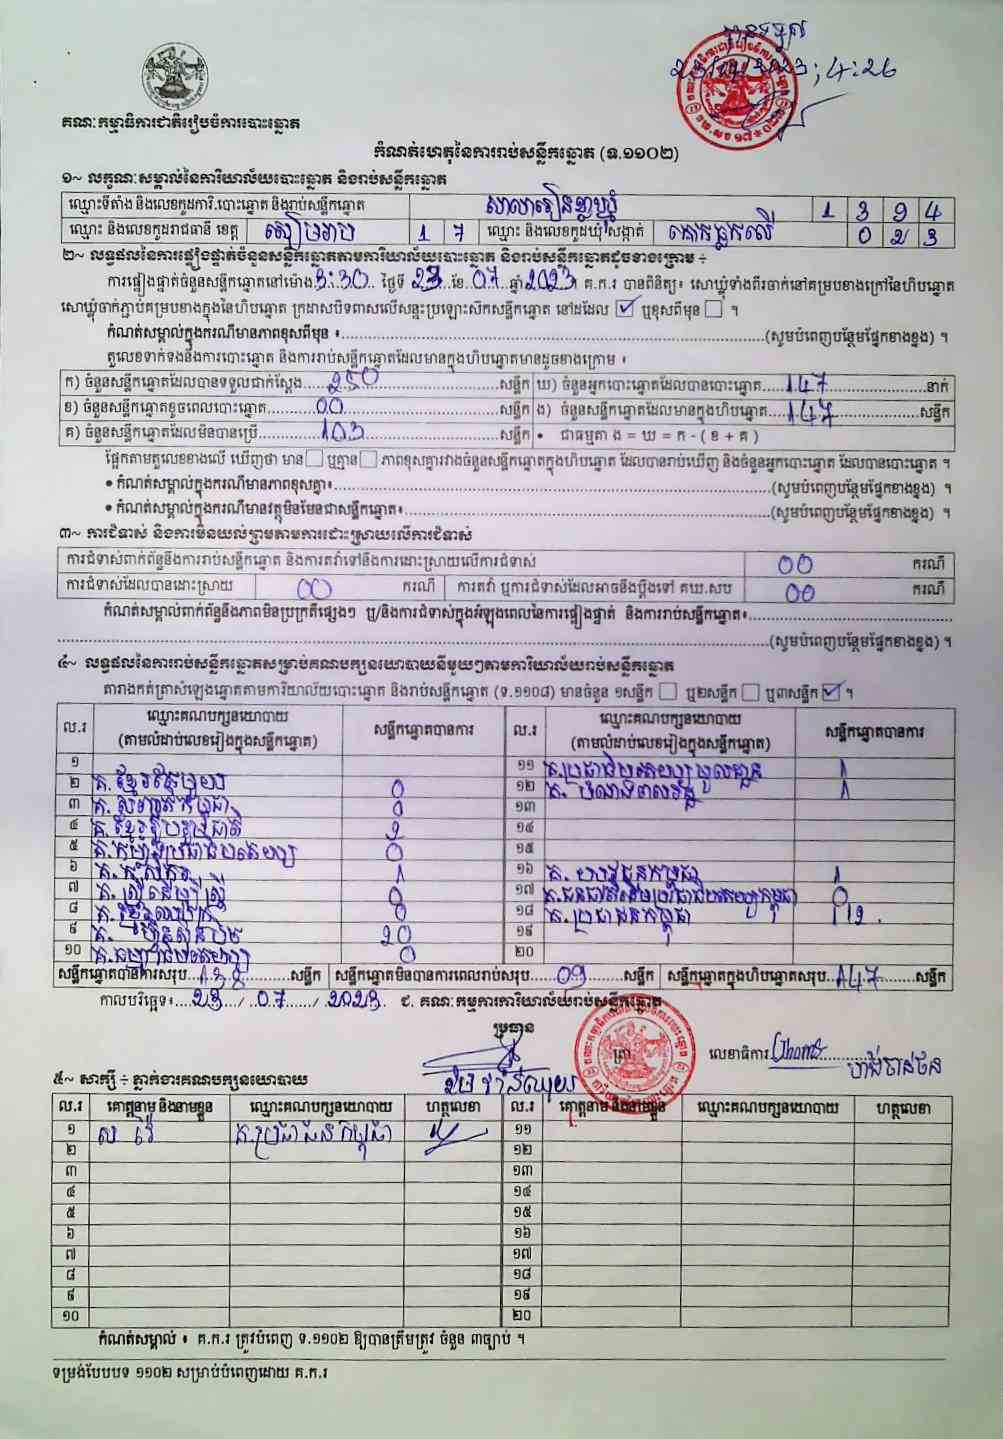 គណៈកម្មាធិការជាតិរៀបចំការបោះឆ្នោត
23/07/2023 ; 4:26
កំណត់ហេតុនៃការរាប់សន្លឹកឆ្នោត (ទ.១១០២)
១~ លក្ខណៈសម្គាល់នៃការិយាល័យបោះឆ្នោត និងរាប់សន្លឹកឆ្នោត
ឈ្មោះទីតាំង និងលេខកូដការិ.បោះឆ្នោត និងរាប់សន្លឹកឆ្នោត 1 3 9 4
ឈ្មោះ និងលេខកូដរាជធានី ខេត្ត សៀមរាប 1 7 ឈ្មោះ និងលេខកូដឃុំ សង្កាត់ គោកធ្លកលើ 0 2 3
២~ លទ្ធផលនៃការផ្ទៀងផ្ទាត់ចំនួនសន្លឹកឆ្នោតតាមការិយាល័យបោះឆ្នោត និងរាប់សន្លឹកឆ្នោតដូចខាងក្រោម ៖
ការផ្ទៀងផ្ទាត់ចំនួនសន្លឹកឆ្នោតនៅម៉ោង 3:30 ថ្ងៃទី 23 ខែ 07 ឆ្នាំ 2023 គ.ក.រ បានពិនិត្យ៖ សោឃ្លុំទាំងពីរចាក់នៅគម្របខាងក្រៅនៃហិបឆ្នោត
សោឃ្លុំចាក់ភ្ជាប់គម្របខាងក្នុងនៃហិបឆ្នោត ក្រដាសបិទពាសលើសន្ទះប្រឡោះសឹកសន្លឹកឆ្នោត នៅដដែល ☑ ឬខុសពីមុន ☐ ។
កំណត់សម្គាល់ក្នុងករណីមានភាពខុសពីមុន ៖ (សូមបំពេញបន្ថែមផ្នែកខាងខ្នង) ។
តួលេខទាក់ទងនឹងការបោះឆ្នោត និងការរាប់សន្លឹកឆ្នោតដែលមានក្នុងហិបឆ្នោតមានដូចខាងក្រោម ៖
ក) ចំនួនសន្លឹកឆ្នោតដែលបានទទួលជាក់ស្តែង 250 សន្លឹក ឃ) ចំនួនអ្នកបោះឆ្នោតដែលបានបោះឆ្នោត 147 នាក់
ខ) ចំនួនសន្លឹកឆ្នោតខូចពេលបោះឆ្នោត 00 សន្លឹក ង) ចំនួនសន្លឹកឆ្នោតដែលមានក្នុងហិបឆ្នោត 147 សន្លឹក
គ) ចំនួនសន្លឹកឆ្នោតដែលមិនបានប្រើ 103 សន្លឹក • ជាធម្មតា ង = ឃ = ក - ( ខ + គ )
ផ្អែកតាមតួលេខខាងលើ ឃើញថា មាន ☐ ឬគ្មាន ☐ ភាពខុសគ្នារវាងចំនួនសន្លឹកឆ្នោតក្នុងហិបឆ្នោត ដែលបានរាប់ឃើញ និងចំនួនអ្នកបោះឆ្នោត ដែលបានបោះឆ្នោត ។
• កំណត់សម្គាល់ក្នុងករណីមានភាពខុសគ្នា៖ (សូមបំពេញបន្ថែមផ្នែកខាងខ្នង) ។
• កំណត់សម្គាល់ក្នុងករណីមានវត្ថុមិនមែនជាសន្លឹកឆ្នោត៖ (សូមបំពេញបន្ថែមផ្នែកខាងខ្នង) ។
៣~ ការជំទាស់ និងការមិនយល់ព្រមតាមការដោះស្រាយលើការជំទាស់
ការជំទាស់ពាក់ព័ន្ធនឹងការរាប់សន្លឹកឆ្នោត និងការតវ៉ាទៅនឹងការដោះស្រាយលើការជំទាស់ 00 ករណី
ការជំទាស់ដែលបានដោះស្រាយ 00 ករណី ការតវ៉ា ឬការជំទាស់ដែលអាចនឹងប្តឹងទៅ គឃ.សប 00 ករណី
កំណត់សម្គាល់ពាក់ព័ន្ធនឹងភាពមិនប្រក្រតីផ្សេងៗ ឬ/និងការជំទាស់ក្នុងអំឡុងពេលនៃការផ្ទៀងផ្ទាត់ និងការរាប់សន្លឹកឆ្នោត៖
(សូមបំពេញបន្ថែមផ្នែកខាងខ្នង) ។
៤~ លទ្ធផលនៃការរាប់សន្លឹកឆ្នោតសម្រាប់គណបក្សនយោបាយនីមួយៗតាមការិយាល័យរាប់សន្លឹកឆ្នោត
តារាងកត់ត្រាសំឡេងឆ្នោតតាមការិយាល័យបោះឆ្នោត និងរាប់សន្លឹកឆ្នោត (ទ.១១០៨) មានចំនួន ១សន្លឹក ☐ ឬ២សន្លឹក ☐ ឬ៣សន្លឹក ☑ ។
ល.រ ឈ្មោះគណបក្សនយោបាយ (តាមលំដាប់លេខរៀងក្នុងសន្លឹកឆ្នោត) សន្លឹកឆ្នោតបានការ ល.រ ឈ្មោះគណបក្សនយោបាយ (តាមលំដាប់លេខរៀងក្នុងសន្លឹកឆ្នោត) សន្លឹកឆ្នោតបានការ
១ ១១ គ.ប្រជាធិបតេយ្យមូលដ្ឋាន 1
២ គ.ខ្មែរតែមួយ 0 ១២ 1
៣ 0 ១៣
៤ គ.ខ្មែររួបរួមជាតិ 2 ១៤
៥ គ.កម្លាំងប្រជាធិបតេយ្យ 0 ១៥
៦ គ.កសិករ 1 ១៦ គ. យុវជនកម្ពុជា 1
៧ គ.ស្ត្រីដើម្បីស្ត្រី 0 ១៧ គ.ជនជាតិដើមប្រជាធិបតេយ្យកម្ពុជា 0
៨ 0 ១៨ គ.ប្រជាជនកម្ពុជា 112
៩ គ. ហ៊្វុនស៊ិនប៉ិច 20 ១៩
១០ គ.ធម្មាធិបតេយ្យ 0 ២០
សន្លឹកឆ្នោតបានការសរុប 138 សន្លឹក សន្លឹកឆ្នោតមិនបានការពេលរាប់សរុប 09 សន្លឹក សន្លឹកឆ្នោតក្នុងហិបឆ្នោតសរុប 147 សន្លឹក
កាលបរិច្ឆេទ៖ 23 / 07 / 2023 ជ. គណៈកម្មការការិយាល័យរាប់សន្លឹកឆ្នោត
ប្រធាន
ត្រា លេខាធិការ
៥~ សាក្សី ៖ ភ្នាក់ងារគណបក្សនយោបាយ
ល.រ គោត្តនាម និងនាមខ្លួន ឈ្មោះគណបក្សនយោបាយ ហត្ថលេខា ល.រ គោត្តនាម និងនាមខ្លួន ឈ្មោះគណបក្សនយោបាយ ហត្ថលេខា
១ គ.ប្រជាជនកម្ពុជា ១១
២ ១២
៣ ១៣
៤ ១៤
៥ ១៥
៦ ១៦
៧ ១៧
៨ ១៨
៩ ១៩
១០ ២០
កំណត់សម្គាល់ ៖ គ.ក.រ ត្រូវបំពេញ ទ.១១០២ ឱ្យបានត្រឹមត្រូវ ចំនួន ៣ច្បាប់ ។
ទម្រង់បែបបទ ១១០២ សម្រាប់បំពេញដោយ គ.ក.រ